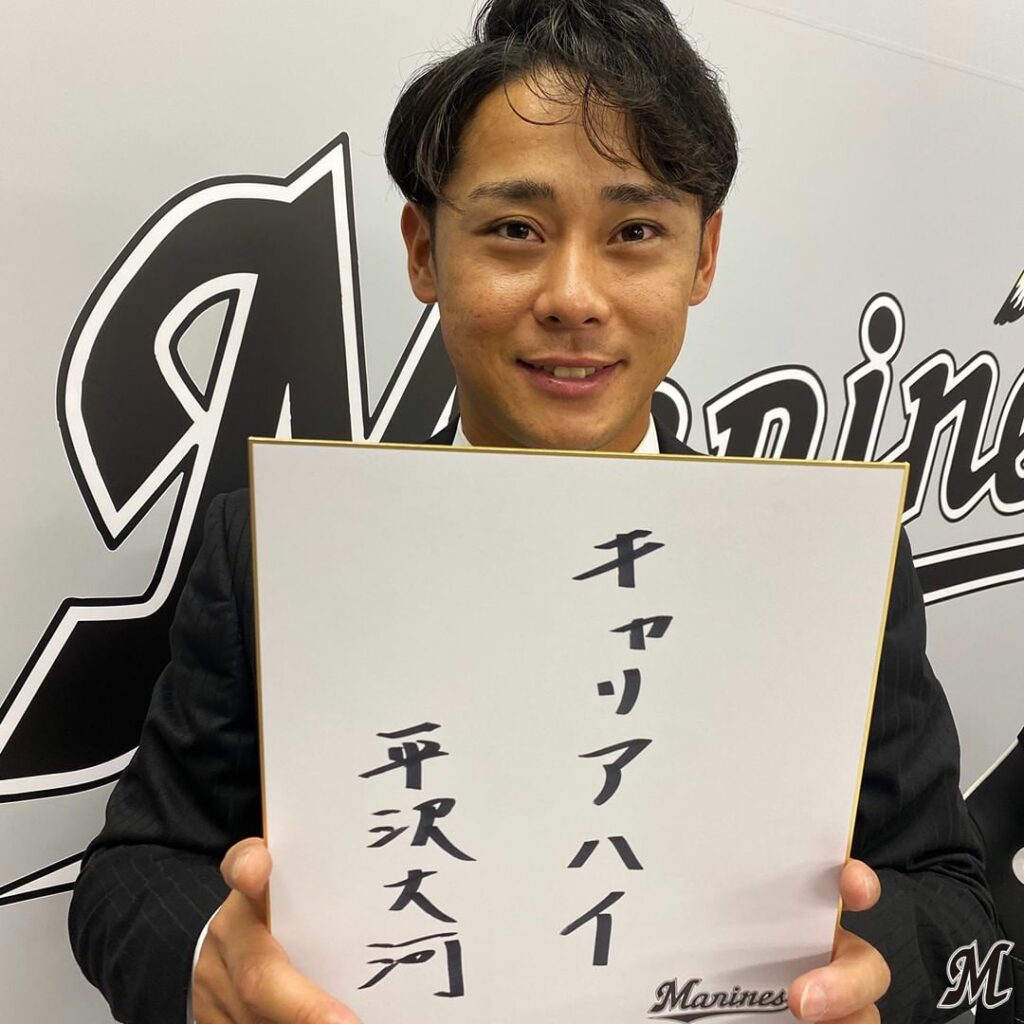 Marines
キャリアハイ
平沢大河
Marines
M